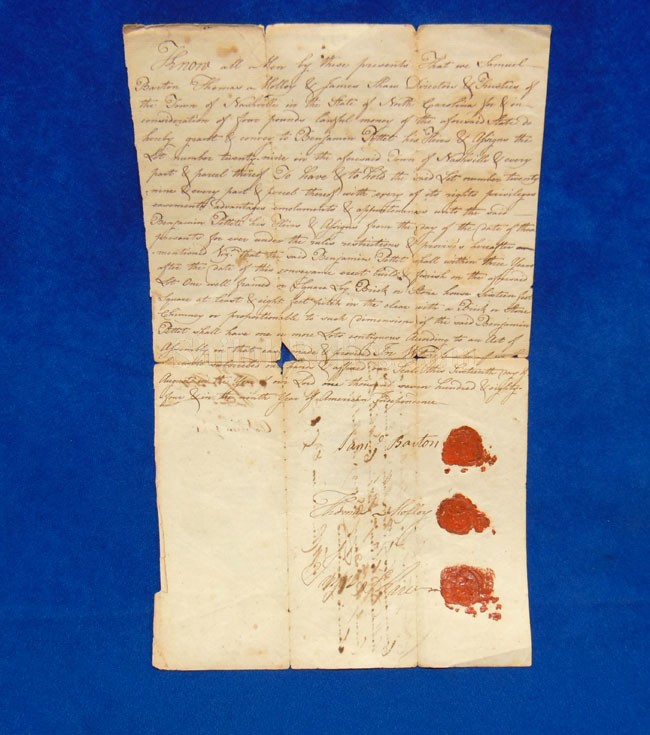 Know all Men by these presents That we Samuel
Barton Thomas Molloy & James Shaw Directors & Trustees of
the Town of Nashville in the State of North Carolina for & in
consideration of four pounds lawful money of the aforesaid State do
hereby grant & convey to Benjamin Pettet his Heirs & Assigns the
Lot number twenty nine in the aforesaid Town of Nashville & every
part & parcel thereof To have & to hold the said Lot number twenty
nine & every part & parcel thereof with every of its rights privileges
emoluments & appurtenances unto the said
Benjamin Pettet his Heirs & Assigns from the day of the date of these
presents for ever under the rules restrictions & proviso hereafter
mentioned Viz. that the said Benjamin Pettet shall within three Years
after the date of this conveyance erect build & finish on the aforesaid
Lot One well framed or Square Log Brick or Stone house Sixteen feet
Square at least & eight feet pitch in the clear with a Brick or Stone
Chimney or proportionable to such dimensions if the said Benjamin
Pettet shall have one or more Lots contiguous according to an Act of
Assembly in that case made & provided In
& affixed our Seals this Sixteenth day of
August in the Year of our Lord one thousand seven hundred & eighty
four & in the ninth Year of American Independence
Saml. Barton
Thomas Molloy